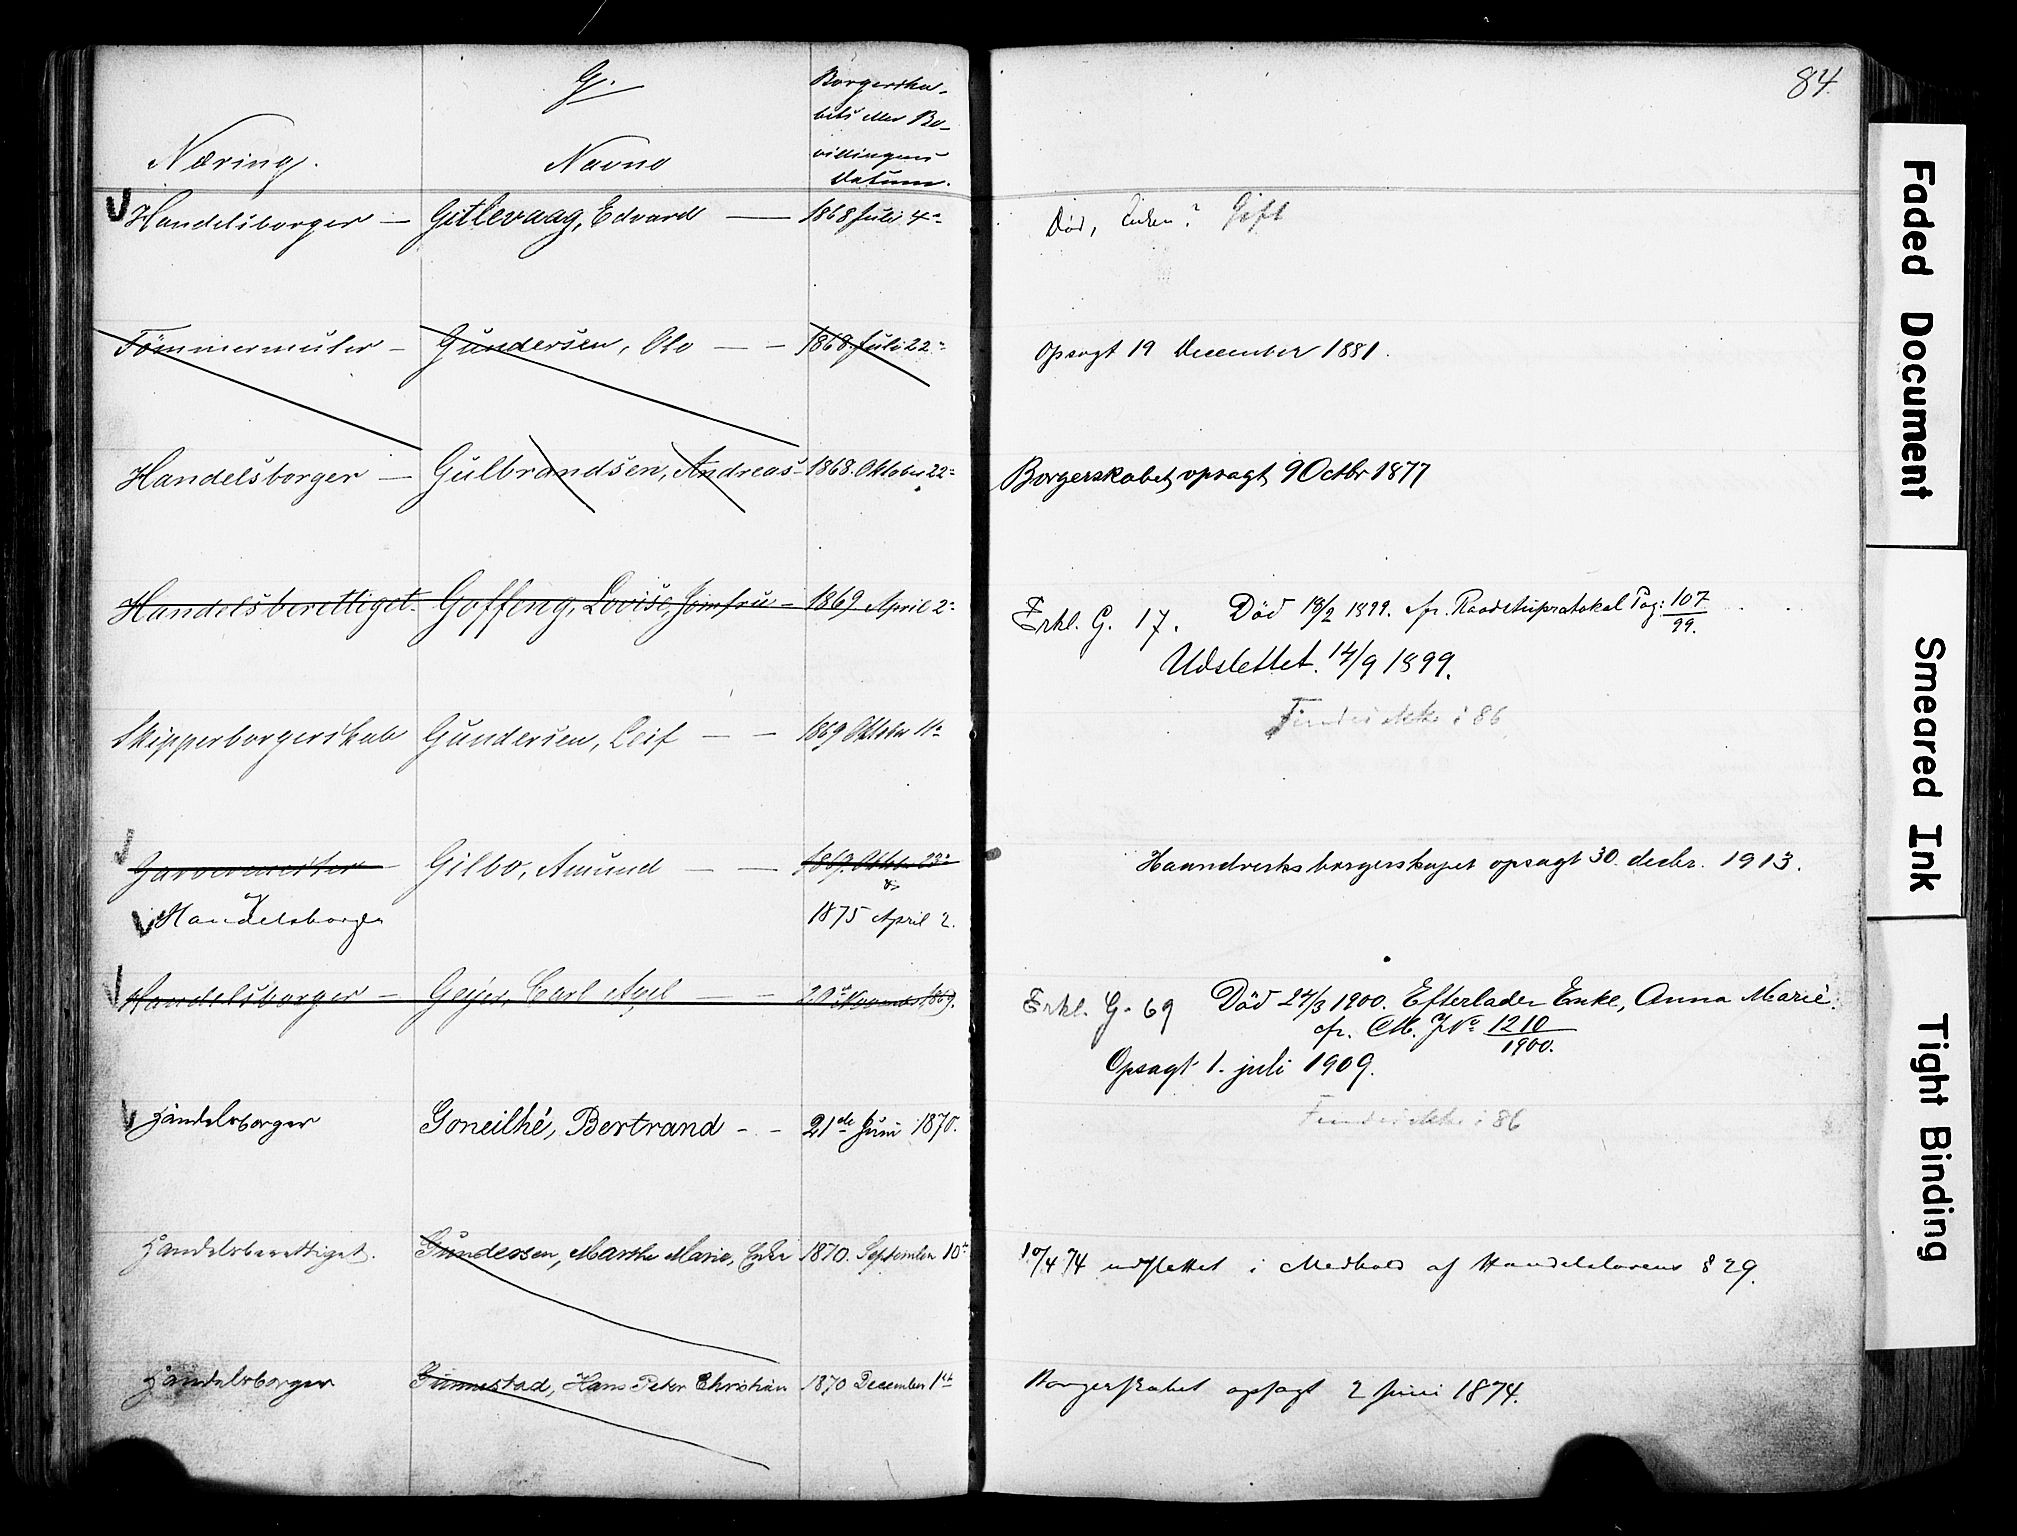 G.
Næring.
Navne
Borgerska-
bets eller Be-
villingens
Datum.
84
Handelsborger — Gitlevaag, Edvard — 1868 Juli 4
Død, Enken? Gift
Tømmermester — Gundersen, Ole — — 1868. Juli 22
Opsagt 19 December 1881.
Handelsborger — Gulbrandsen, Andreas - 1868. Oktober 22
Borgerskabet opsagt 9 Octbr 1877
Handelsberettiget. Goffeng, Lovise, Jomfru — 1869 April 2
Erkl. G. 17. Död 18/2 1899. cfr. Raadstuprotokol Pag: 107/99.
Udslettet. 14/9 1899.
Findes ikke i 86
Skipperborgerskab Gundersen, Leif — — 1869 Oktober 11
Garvermester — Gilbo, Amund — — 1869. Oktbr. 23
og &
Handelsborger 1875 April 2.
Haandverksborgerskapet opsagt 30. decbr. 1913.
Handelsborger — Gejer, Carl Axel — — 20 November 1869.
Erkl. G. 69 Död 24/3 1900. Efterlader Enke, Anna Marie.
cfr. CM. JNo 1210/1900.
Opsagt 1. juli 1909.
Handelsborger Goneilhé, Bertrand - - 21de Juni 1870.
Findes ikke i 86
Handelsberettiget. Gundersen, Marthe Marie, Enke 1870. September 10
10/4 74 udslettet i Medhold af Handelslovens § 29.
Handelsborger Gimnestad, Hans Peter Christian 1870 December 1
Borgerskabet opsagt 2 Juni 1874.
Faded Document
Smeared Ink
Tight Binding